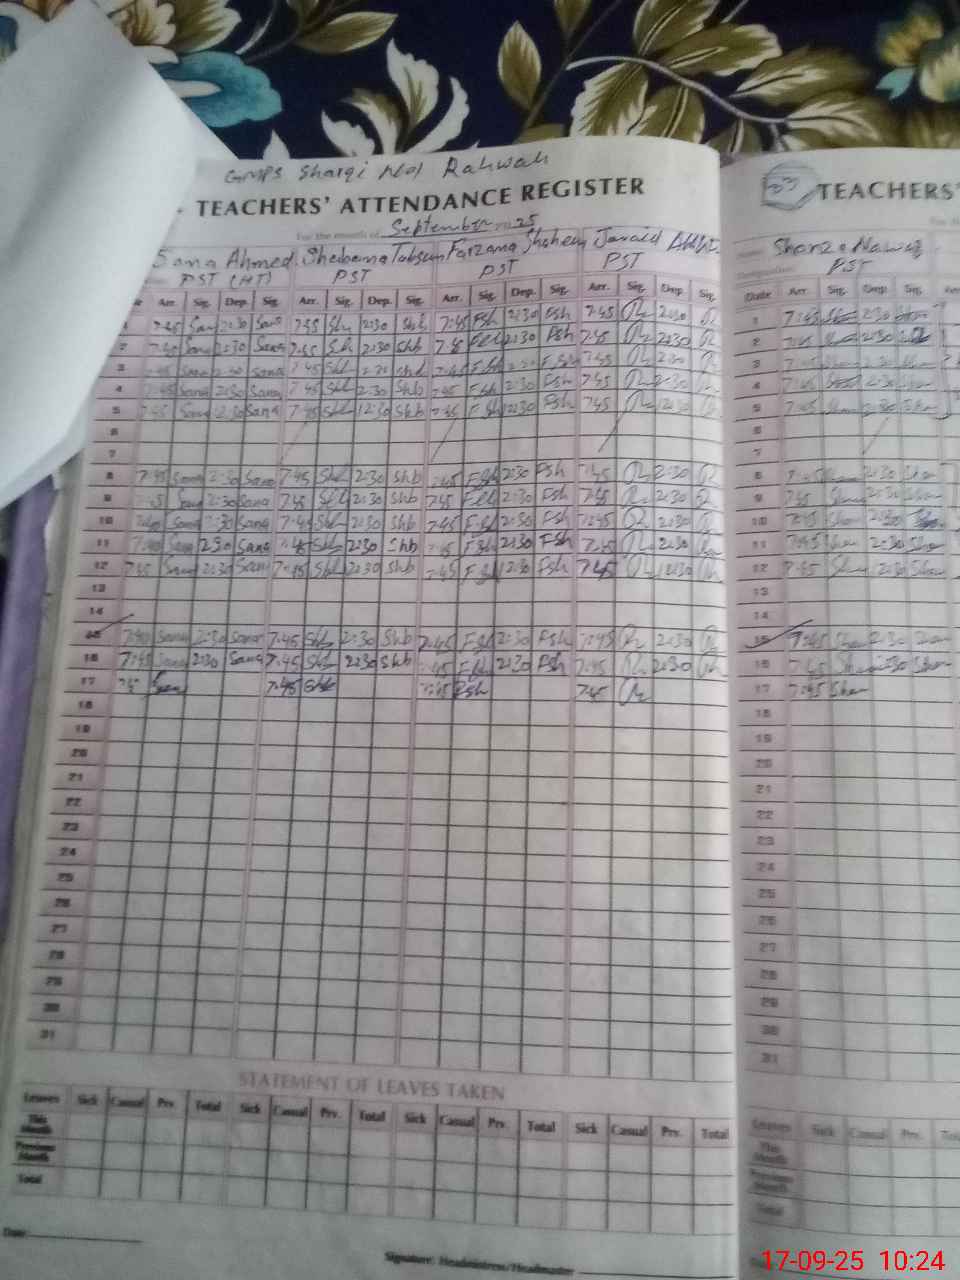 GMPS Sharqi No1 Rahwali
TEACHERS' ATTENDANCE REGISTER
For the month of September 2025
Sana Ahmed Shabana Tabsum Farzana Shaheen Javaid
PST (HT) PST PST PST
Arr. Sig. Dep. Sig. Arr. Sig. Dep. Sig. Arr. Sig. Dep. Sig. Arr. Sig. Dep. Sig.
1 7:45 Sana 2:30 Sana 7:45 Shb 2:30 Shb 7:45 Fsh 2:30 Fsh 7:45 2:30
2 7:40 Sana 2:30 Sana 7:45 Shb 2:30 Shb 7:45 Fsh 2:30 Fsh 7:45 2:30
3 7:45 Sana 2:30 Sana 7:45 Shb 2:30 Shb 7:45 Fsh 2:30 Fsh 7:45 2:30
4 7:45 Sana 2:30 Sana 7:45 Shb 2:30 Shb 7:45 Fsh 2:30 Fsh 7:45 2:30
5 7:45 Sana 2:30 Sana 7:45 Shb 12:30 Shb 7:45 Fsh 12:30 Fsh 7:45 12:30
6
7
8 7:45 Sana 2:30 Sana 7:45 Shb 2:30 Shb 7:45 Fsh 2:30 Fsh 7:45 2:30
9 7:45 Sana 2:30 Sana 7:45 Shb 2:30 Shb 7:45 Fsh 2:30 Fsh 7:45 2:30
10 7:40 Sana 2:30 Sana 7:45 Shb 2:30 Shb 7:45 Fsh 2:30 Fsh 7:45 2:30
11 7:40 Sana 2:30 Sana 7:45 Shb 2:30 Shb 7:45 Fsh 2:30 Fsh 7:45 2:30
12 7:45 Sana 12:30 Sana 7:45 Shb 12:30 Shb 7:45 Fsh 12:30 Fsh 7:45 12:30
13
14
15 7:40 Sana 2:30 Sana 7:45 Shb 2:30 Shb 7:45 Fsh 2:30 Fsh 7:45 2:30
16 7:45 Sana 2:30 Sana 7:45 Shb 2:30 Shb 7:45 Fsh 2:30 Fsh 7:45 2:30
17 Sana 7:45 Shb 7:45 Fsh 7:45
18
19
20
21
22
23
24
25
26
27
28
29
30
31
STATEMENT OF LEAVES TAKEN
Leaves Sick Casual Prv. Total Sick Casual Prv. Total Sick Casual Prv. Total Sick Casual Prv. Total
This Month
Previous Month
Total
Date:
Signature: Headmistress/Headmaster
23 TEACHERS'
Shanza Nawaz
Designation PST
Date Arr. Sig. Dep. Sig.
1 7:45 Shan 2:30 Shan
2 7:45 Shan 2:30 Shan
3 7:45 Shan 2:30 Shan
4 7:45 Shan 2:30 Shan
5 7:45 Shan 12:30 Shan
6
7
8 7:45 Shan 2:30 Shan
9 7:45 Shan 2:30 Shan
10 7:45 Shan 2:30 Shan
11 7:45 Shan 2:30 Shan
12 7:45 Shan 12:30 Shan
13
14
15 7:45 Shan 2:30 Shan
16 7:45 Shan 2:30 Shan
17 7:45 Shan
18
19
20
21
22
23
24
25
26
27
28
29
30
31
Leaves Sick Casual Prv.
This Month
Previous Month
Total
17-09-25 10:24